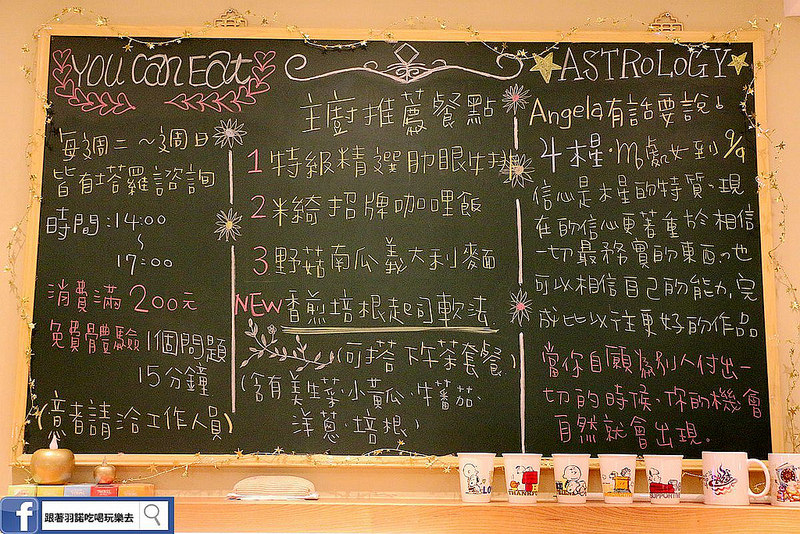 YOU Can Eat
每週二～週日
皆有塔羅諮詢
時間:14:00
~
17:00
消費滿200元
免費體驗1個問題
15分鐘
(意者請洽工作人員)
主廚推薦餐點
1特級精選肋眼牛排
2米綺招牌咖哩飯
3.野菇南瓜義大利麵
NEW香煎培根起司軟法
(可搭下午茶套餐)
(含有美生菜.小黃瓜.牛蕃茄.
洋蔥.培根)
ASTROLOGY
Angela有話要說!
木星.處女到9/9
信心是木星的特質.現
在的信心更著重於相信
一切最務實的東西.也
可以相信自己的能力,完
成比以往更好的作品
當你自願為別人付出一
切的時候,你的機會
自然就會出現。
THANKS
f 跟著羽諾吃喝玩樂去